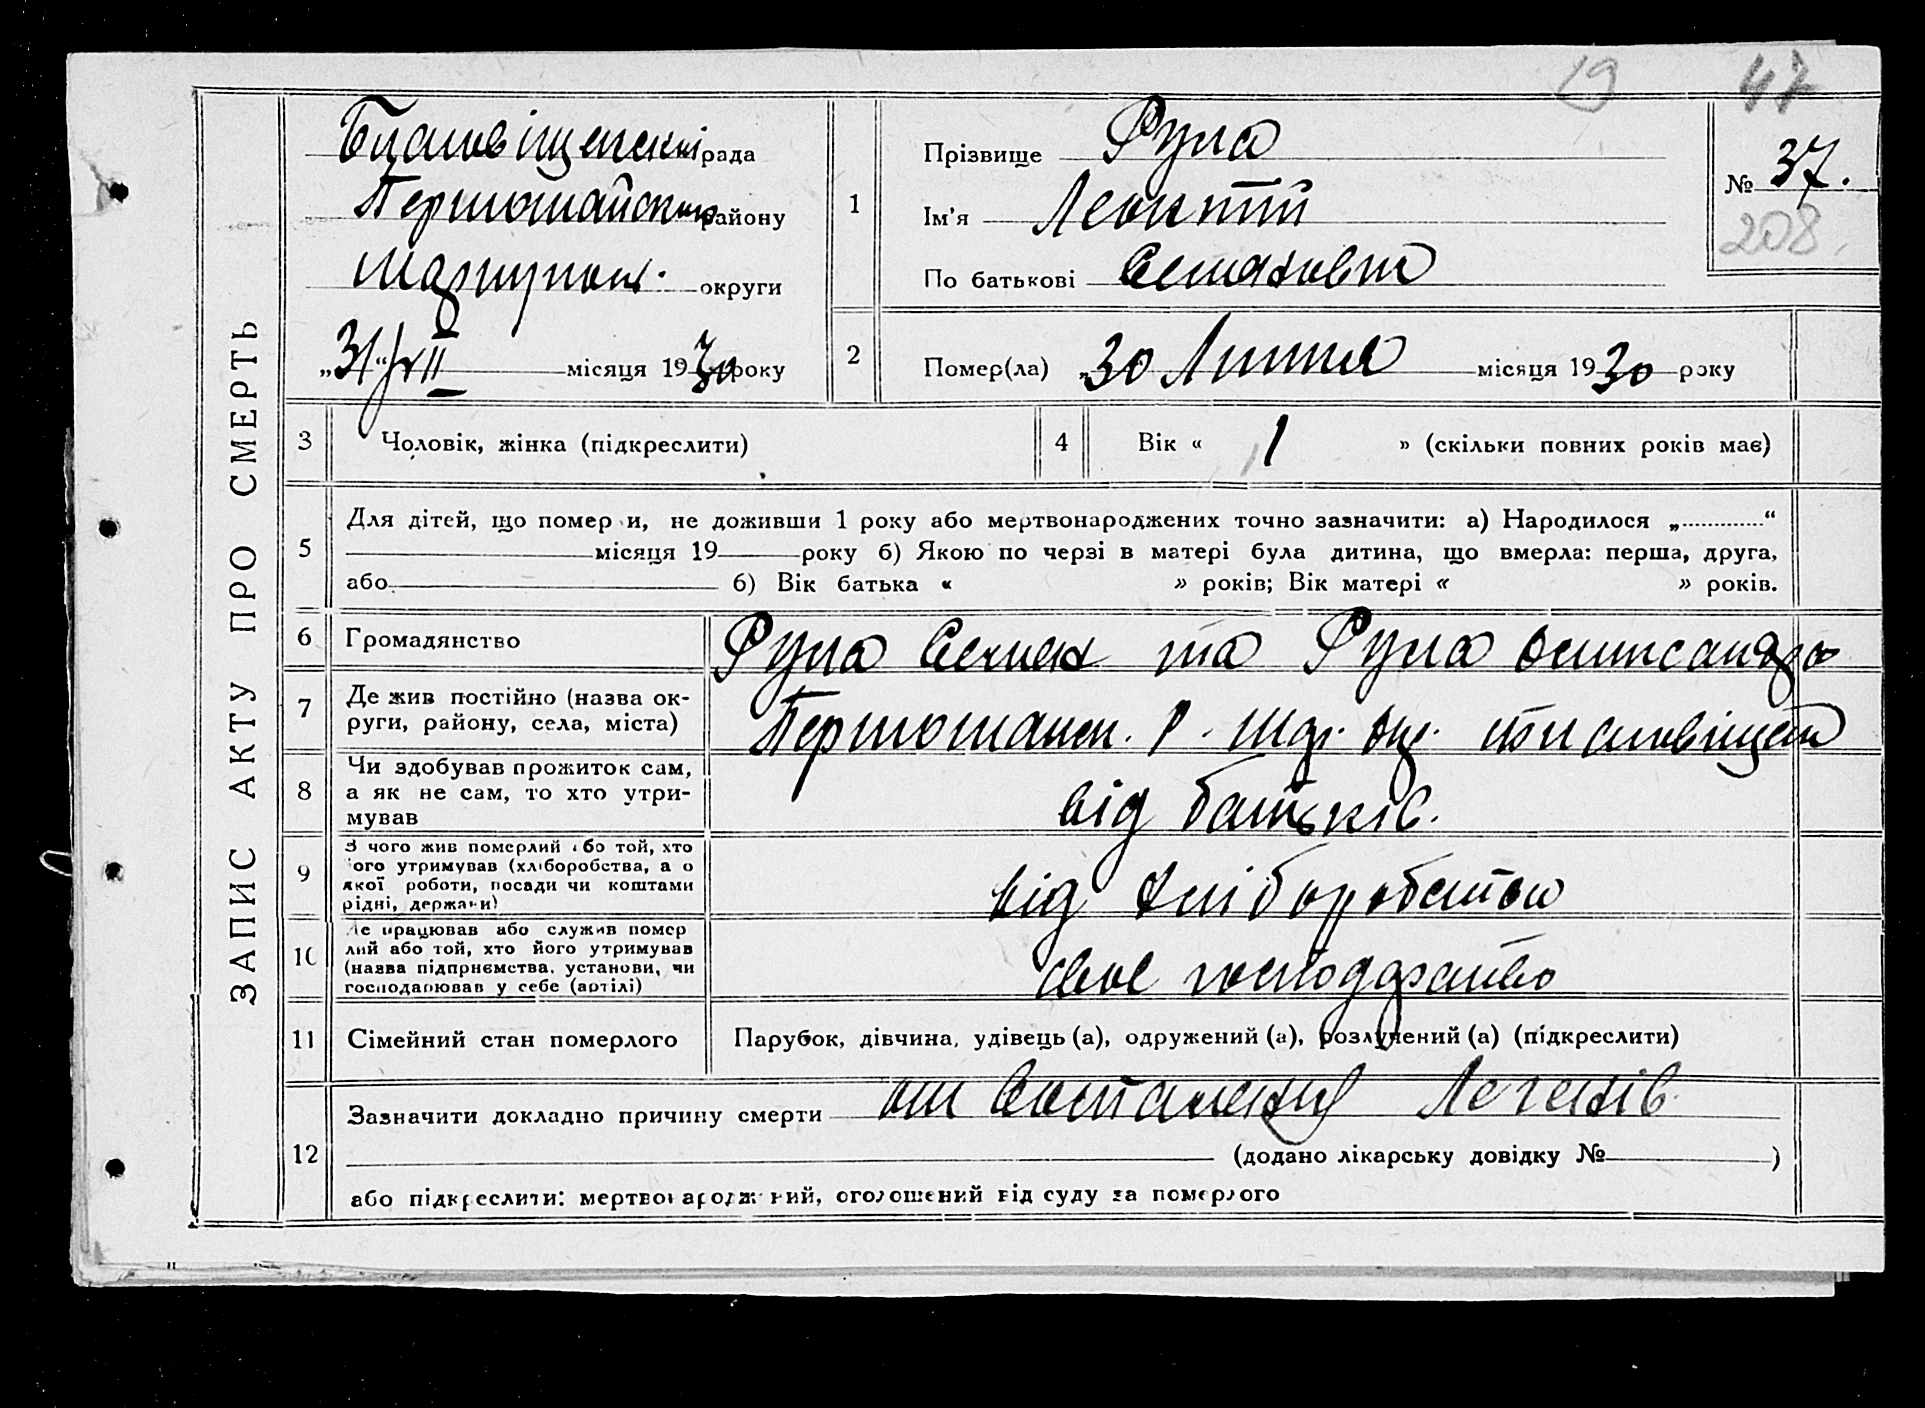 19 47
ЗАПИС АКТУ ПРО СМЕРТЬ
рада
Першомайського району
Маріупольс. округи
„31“ VII місяця 1930 року
1
Прізвище Рула
Ім’я Леонтій
По батькові Семенович
№ 37.
208
2
Помер(ла) „30 Липня місяця 1930 року
3 Чоловік, жінка (підкреслити)
4 Вік « 1 » (скільки повних років має)
5
Для дітей, що померли, не доживши 1 року або мертвонароджених точно зазначити: а) Народилося „............“
місяця 19 року б) Якою по черзі в матері була дитина, що вмерла: перша, друга,
або 6) Вік батька « » років; Вік матері « » років.
6 Громадянство Рула Семен та Рула Олександра
7 Де жив постійно (назва ок-
руги, району, села, міста) Першомайск. Р. Мар. Окр.
8 Чи здобував прожиток сам,
а як не сам, то хто утри-
мував від батьків.
9 З чого жив померлий або той, хто
його утримував (хліборобства, а о
якої роботи, посади чи коштами
рідні, держави) від хліборобства
10 Де працював або служив помер
лий або той, хто його утримував
(назва підприємства, установи, чи
господарював у себе (артілі) своє господарство
11 Сімейний стан померлого Парубок, дівчина, удівець (а), одружений (а), розлучений (а) (підкреслити)
12
Зазначити докладно причину смерти от воспаления Легенів.
(додано лікарську довідку № )
або підкреслити: мертвонароджений, оголошений від суду за померлого